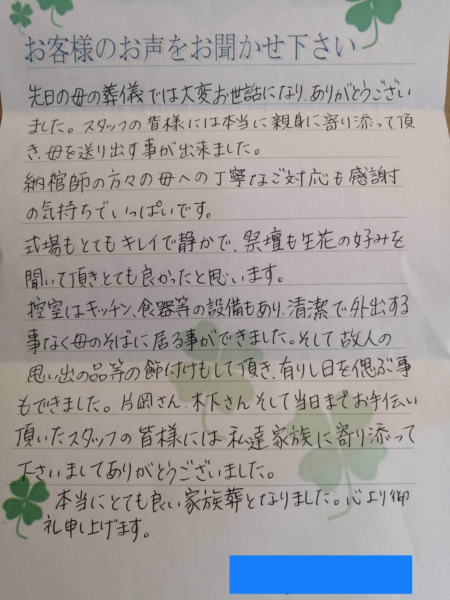 お客様のお声をお聞かせ下さい
先日の母の葬儀では大変お世話になり、ありがとうござい
ました。スタッフの皆様には本当に親身に寄り添って頂
き、母を送り出す事が出来ました。
納棺師の方々の母への丁寧なご対応も感謝
の気持ちでいっぱいです。
式場もとてもキレイで静かで、祭壇も生花の好みを
聞いて頂きとても良かったと思います。
控室はキッチン、食器等の設備もあり、清潔で外出する
事なく母のそばに居る事ができました。そして故人の
思い出の品等の飾付けもして頂き、有りし日を偲ぶ事
もできました。片岡さん、木下さん そして当日までお手伝い
頂いたスタッフの皆様には私達家族に寄り添って
下さいましてありがとうございました。
本当にとても良い家族葬となりました。心より御
礼申し上げます。